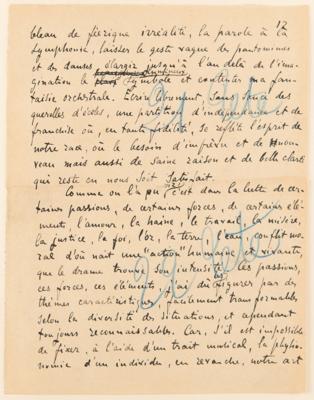 12
bleau de féerique irréalité, la parole à la
symphonie, laisser le geste vague des pantomimes
et des danses, élargir jusqu'à l'au delà de l'ima-
gination le symbole et contenter ma fan-
taisie orchestrale. Ecrire librement, sans souci des
querelles d'écoles, une partition d'indépendance et de
franchise où, en toute fidélité, se reflète l'esprit de
notre race, où le besoin d'imprévu et de nou-
veau mais aussi de saine raison et de belle clarté
qui reste en nous satisfait.
Comme on l'a pu c'est dans la lutte de cer-
taines passions, de certaines forces, de certains élé-
ments, l'amour, la haine, le travail, la misère,
la justice, la foi, l'or, la terre, l'eau, conflit mo-
ral d'où naît une "action" humaine et vivante,
que le drame trouve son intensité. Les passions,
ces forces, ces éléments, j'ai dû les figurer par des
thèmes caractéristiques facilement transformables
selon la diversité des situations, et cependant
toujours reconnaissables. Car, s'il est impossible
de fixer, à l'aide d'un trait musical, la physio-
nomie d'un individu, en revanche, notre art